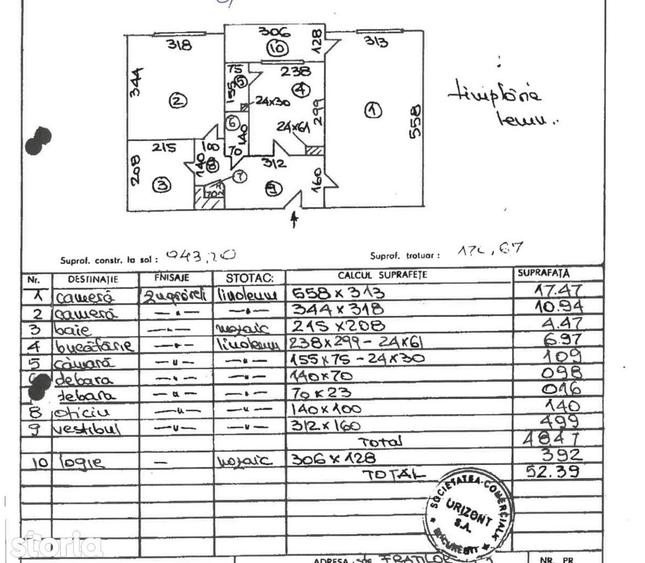 306
128
318
10
313
75
238
5
4
344
155
2
24x30
299
1
558
6
24x61
140
215
18
70
312
208
140
8
3
7
160
9
tîmplărie
lemn..
Supraf. constr. la sol : 943,20 Supraf. trotuar : 126,67
Nr. DESTINAȚIE FNISAJE STOTAC: CALCUL SUPRAFEȚE SUPRAFAȚĂ
1 cameră zugrăveli linoleum 558 x 313 17.47
2 cameră —"— —"— 344 x 318 10.94
3 baie —"— mozaic 215 x 208 4.47
4 bucătărie —"— linoleum 238 x 299 - 24 x 61 6.97
5 cămară —"— —"— 155 x 75 - 24 x 30 109
debara —"— —"— 140 x 70 098
debara —"— —"— 70 x 23 016
8 oficiu —"— —"— 140 x 100 140
9 vestibul —"— —"— 312 x 160 499
Total 48.47
10 logie — mozaic 306 x 128 392
TOTAL 52.39
SOCIETATEA COMERCIALĂ
URIZONT
S.A.
BUCUREȘTI
storia
ADRESA : str. FRAȚILOR NR. PR.